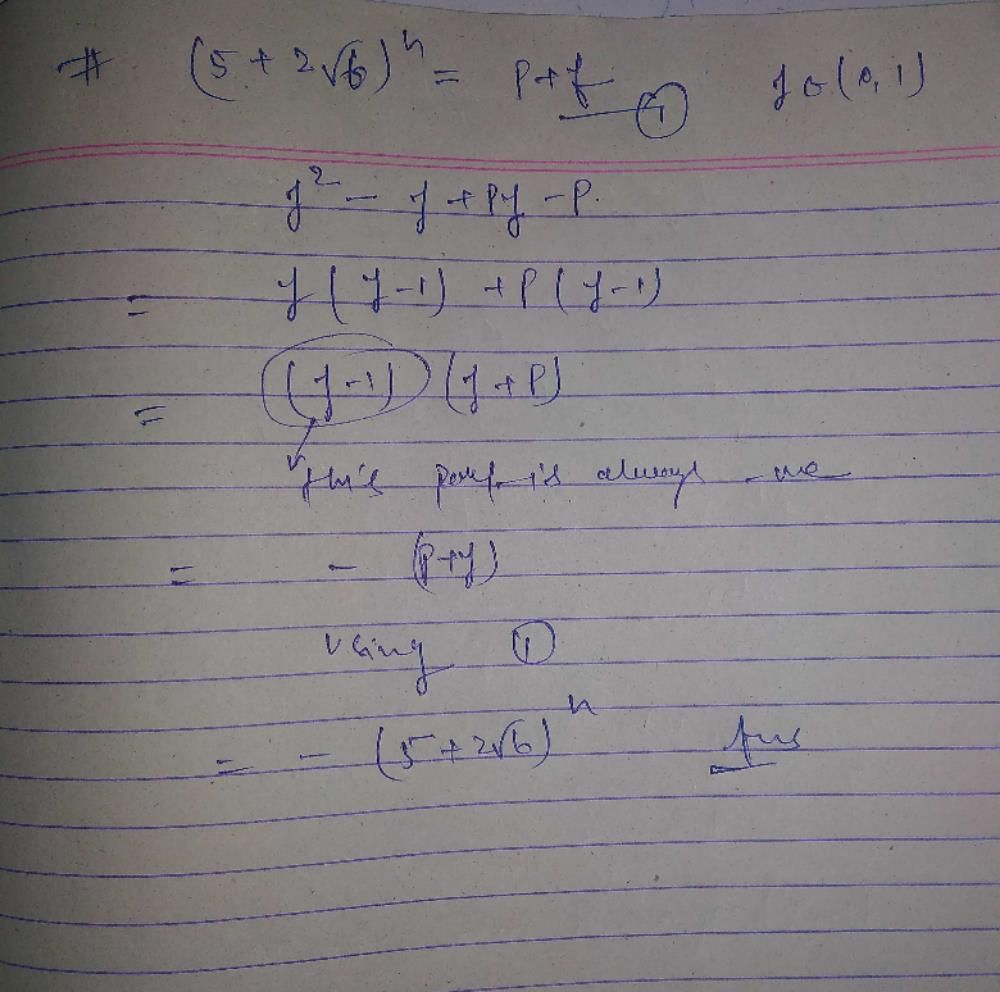 # (5 + 2√6)^n = P+f ① f ∈ (0, 1)
f² - f + Pf - P.
= f(f-1) + P(f-1)
= (f-1) (f+P)
this part is always -ve
= - (P+f)
using ①
= - (5+2√6)^n Ans